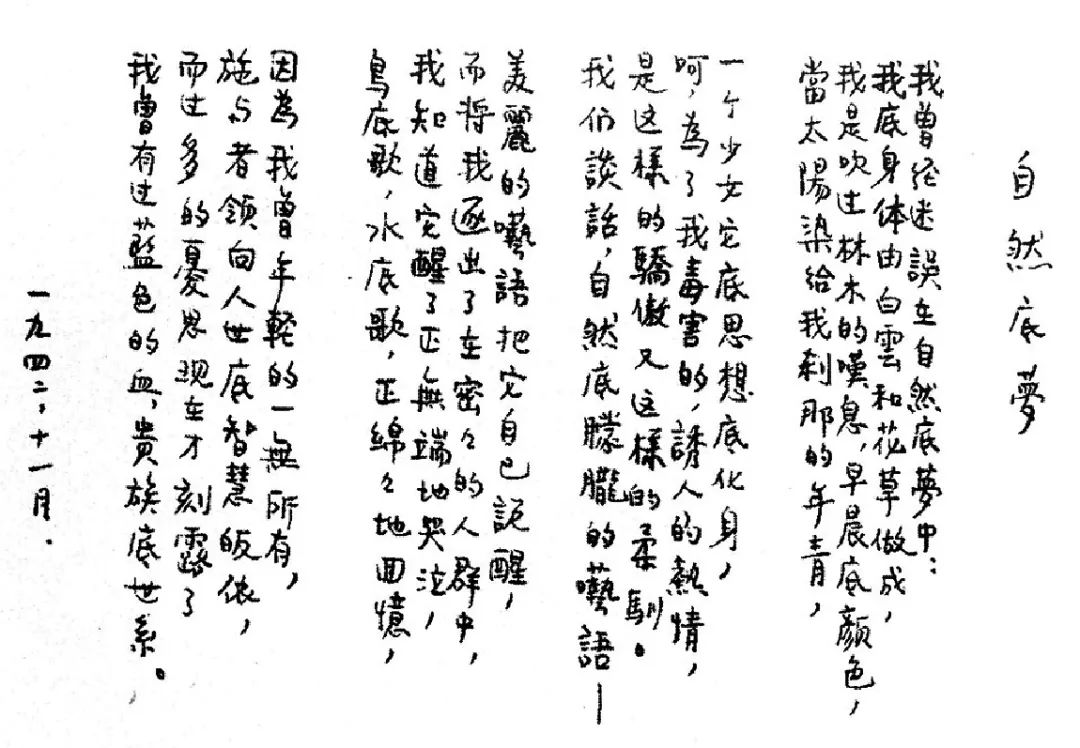 自然底夢
我曾经迷誤在自然底夢中：
我底身体由白雲和花草做成，
我是吹过林木的嘆息，早晨底顏色，
當太陽染給我刹那的年青，
一个少女它底思想底化身，
呵，為了我毒害的，誘人的熱情，
是这樣的驕傲又这樣的柔馴。
我们談話，自然底朦朧的囈語—
美麗的囈語把它自己説醒，
而将我逐出了在密々的人群中，
我知道它醒了正無端地哭泣，
鳥底歌，水底歌，正綿々地回憶，
因為我曾年輕的一無所有，
施与者領向人世底智慧皈依，
而过多的憂思現在才刻露了
我曾有过藍色的血，貴族底世系。
一九四二，十一月．